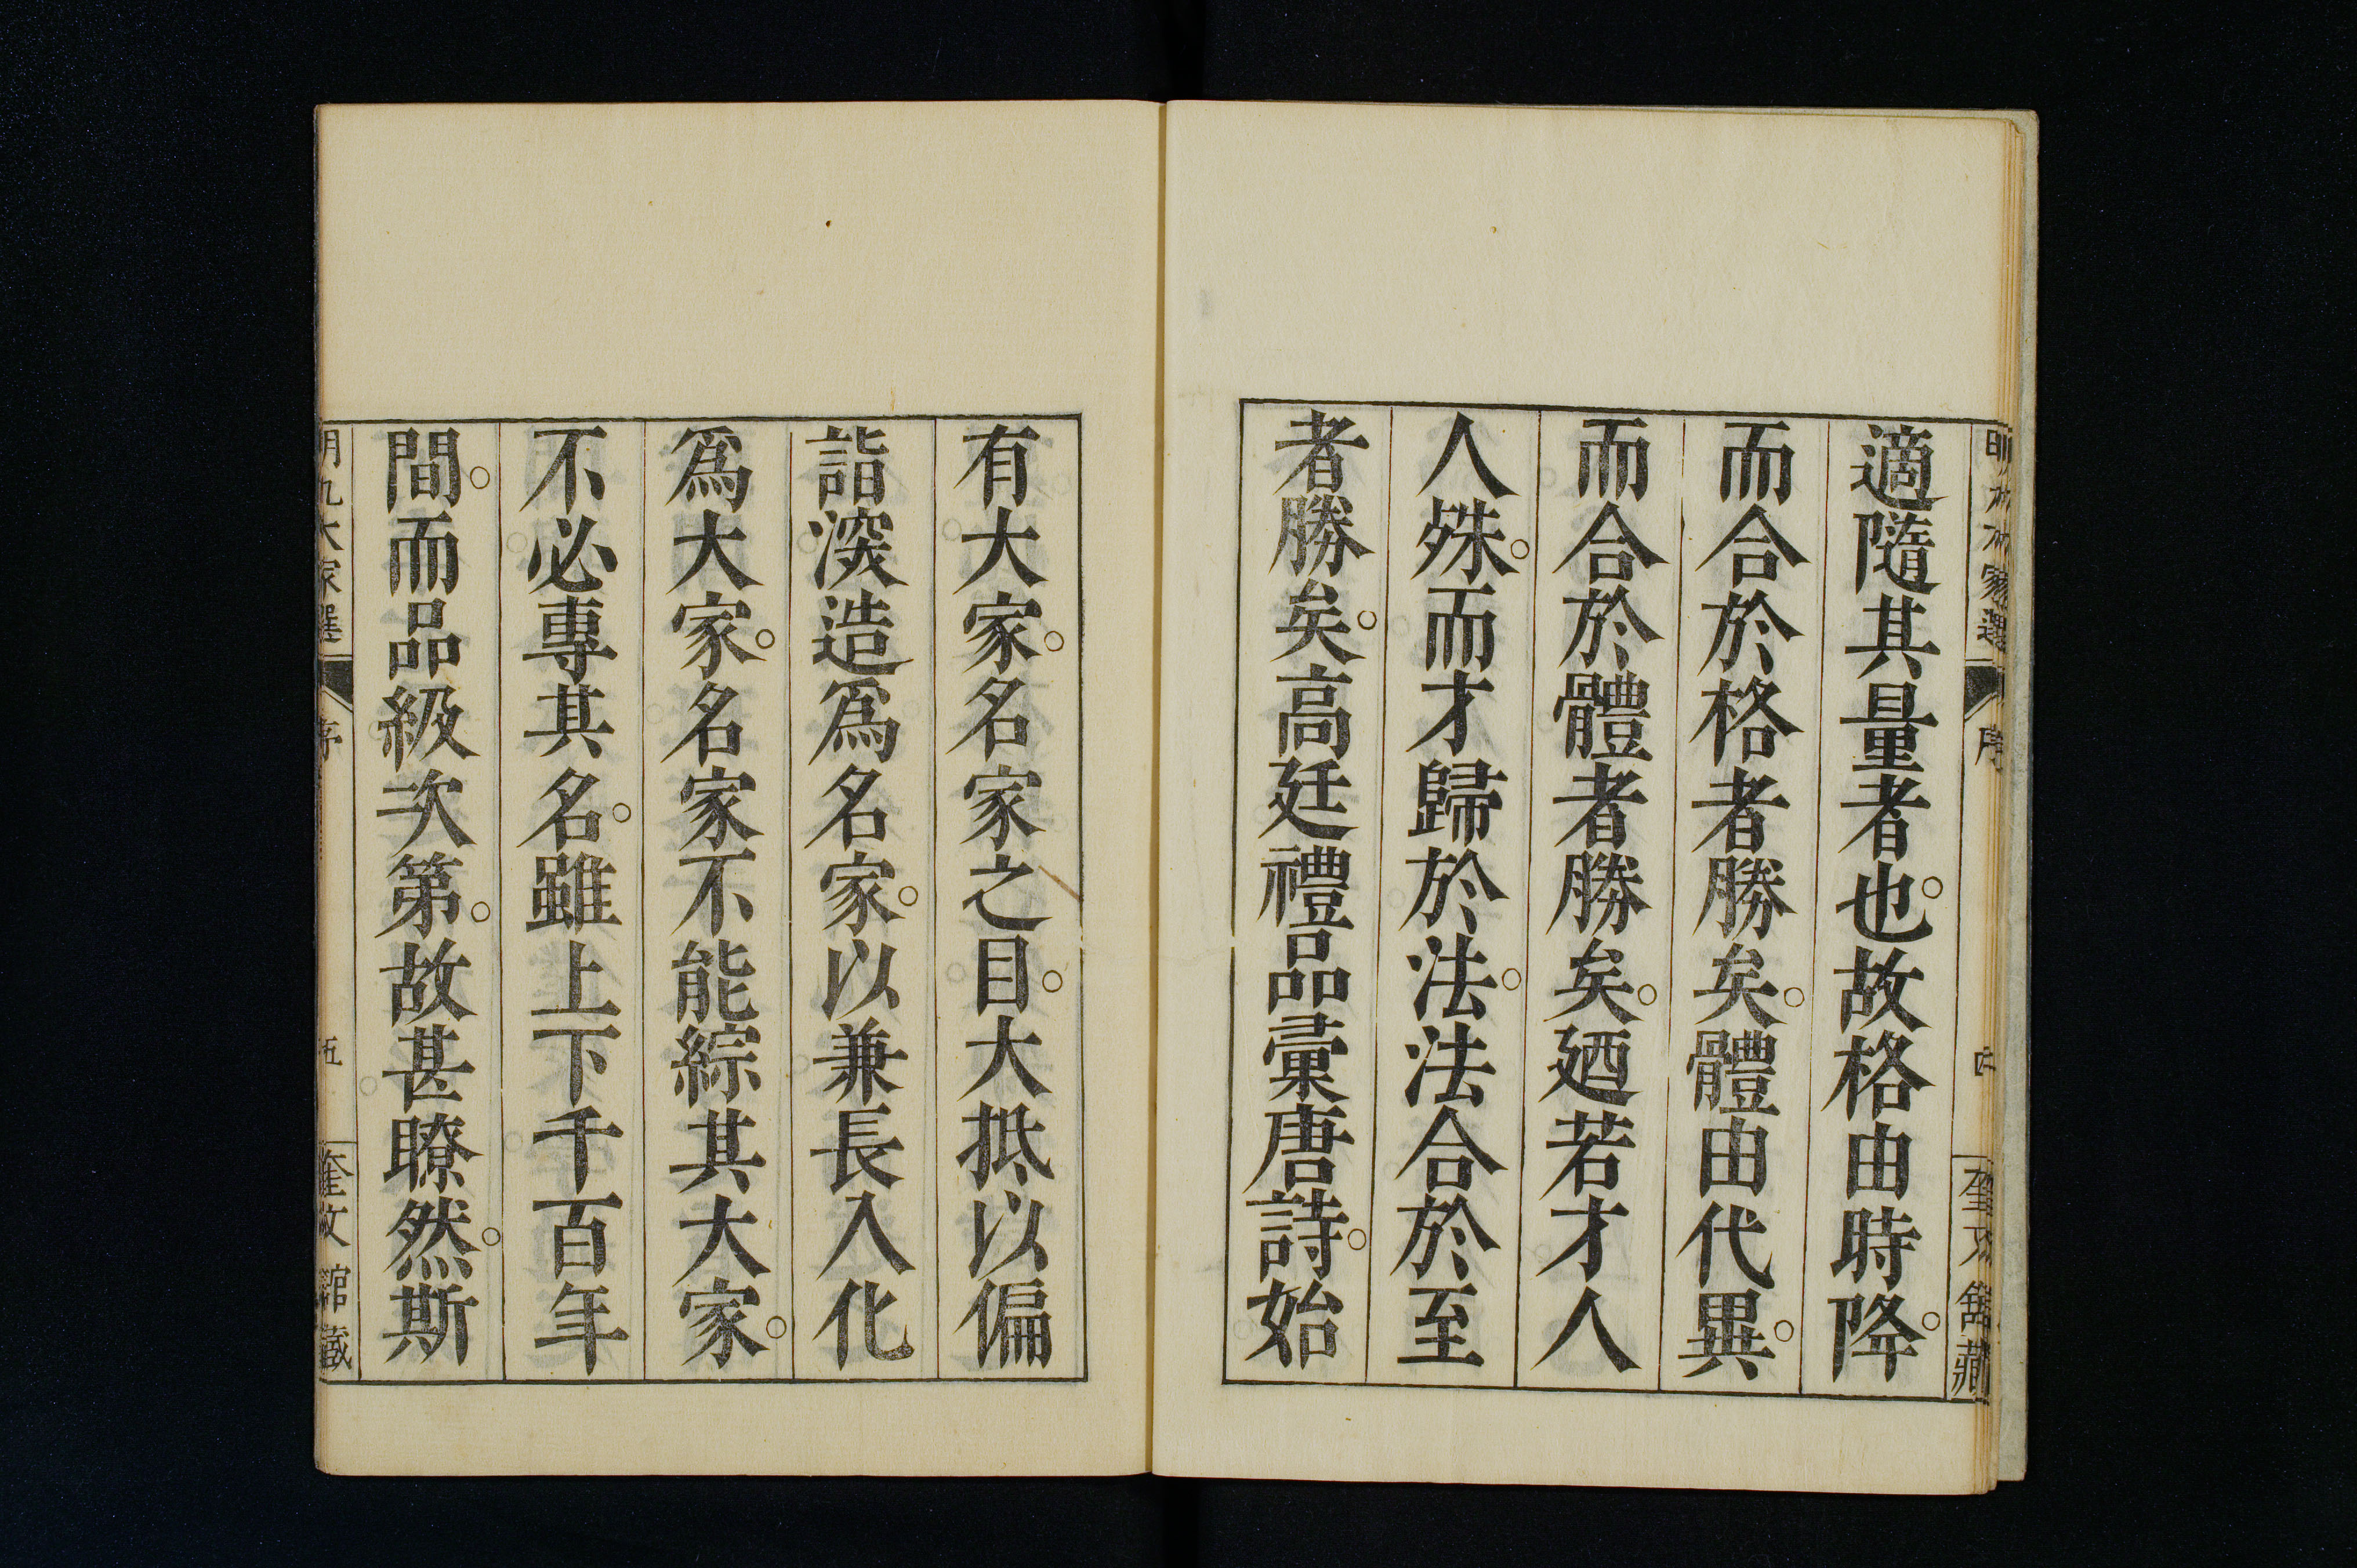 適隨其量者也。故格由時降。
而合於格者勝矣。體由代異。
而合於體者勝矣。廼若才人
人殊。而才歸於法。法合於至
者勝矣。高廷禮品彙唐詩。始
有大家。名家之目。大抵以偏
詣湥造爲名家。以兼長入化
爲大家。名家不能綜其大家。
不必專其名。雖上下千百年
間。而品級次第。故甚瞭然。斯
明九大家選 序 五 奎文館藏